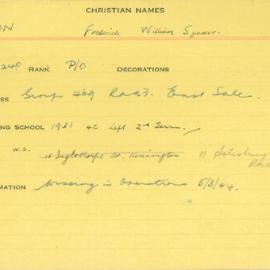 CHRISTIAN NAMES
ON Frederick William Spencer.
240 RANK P/O DECORATIONS
SS Group 469 R.A.A.F. East Sale.
NG SCHOOL 1931 4C Left 2nd Term.
W.S. Inglethorpe St. Kensington 11
MATION Missing in Operations 5/3/44.